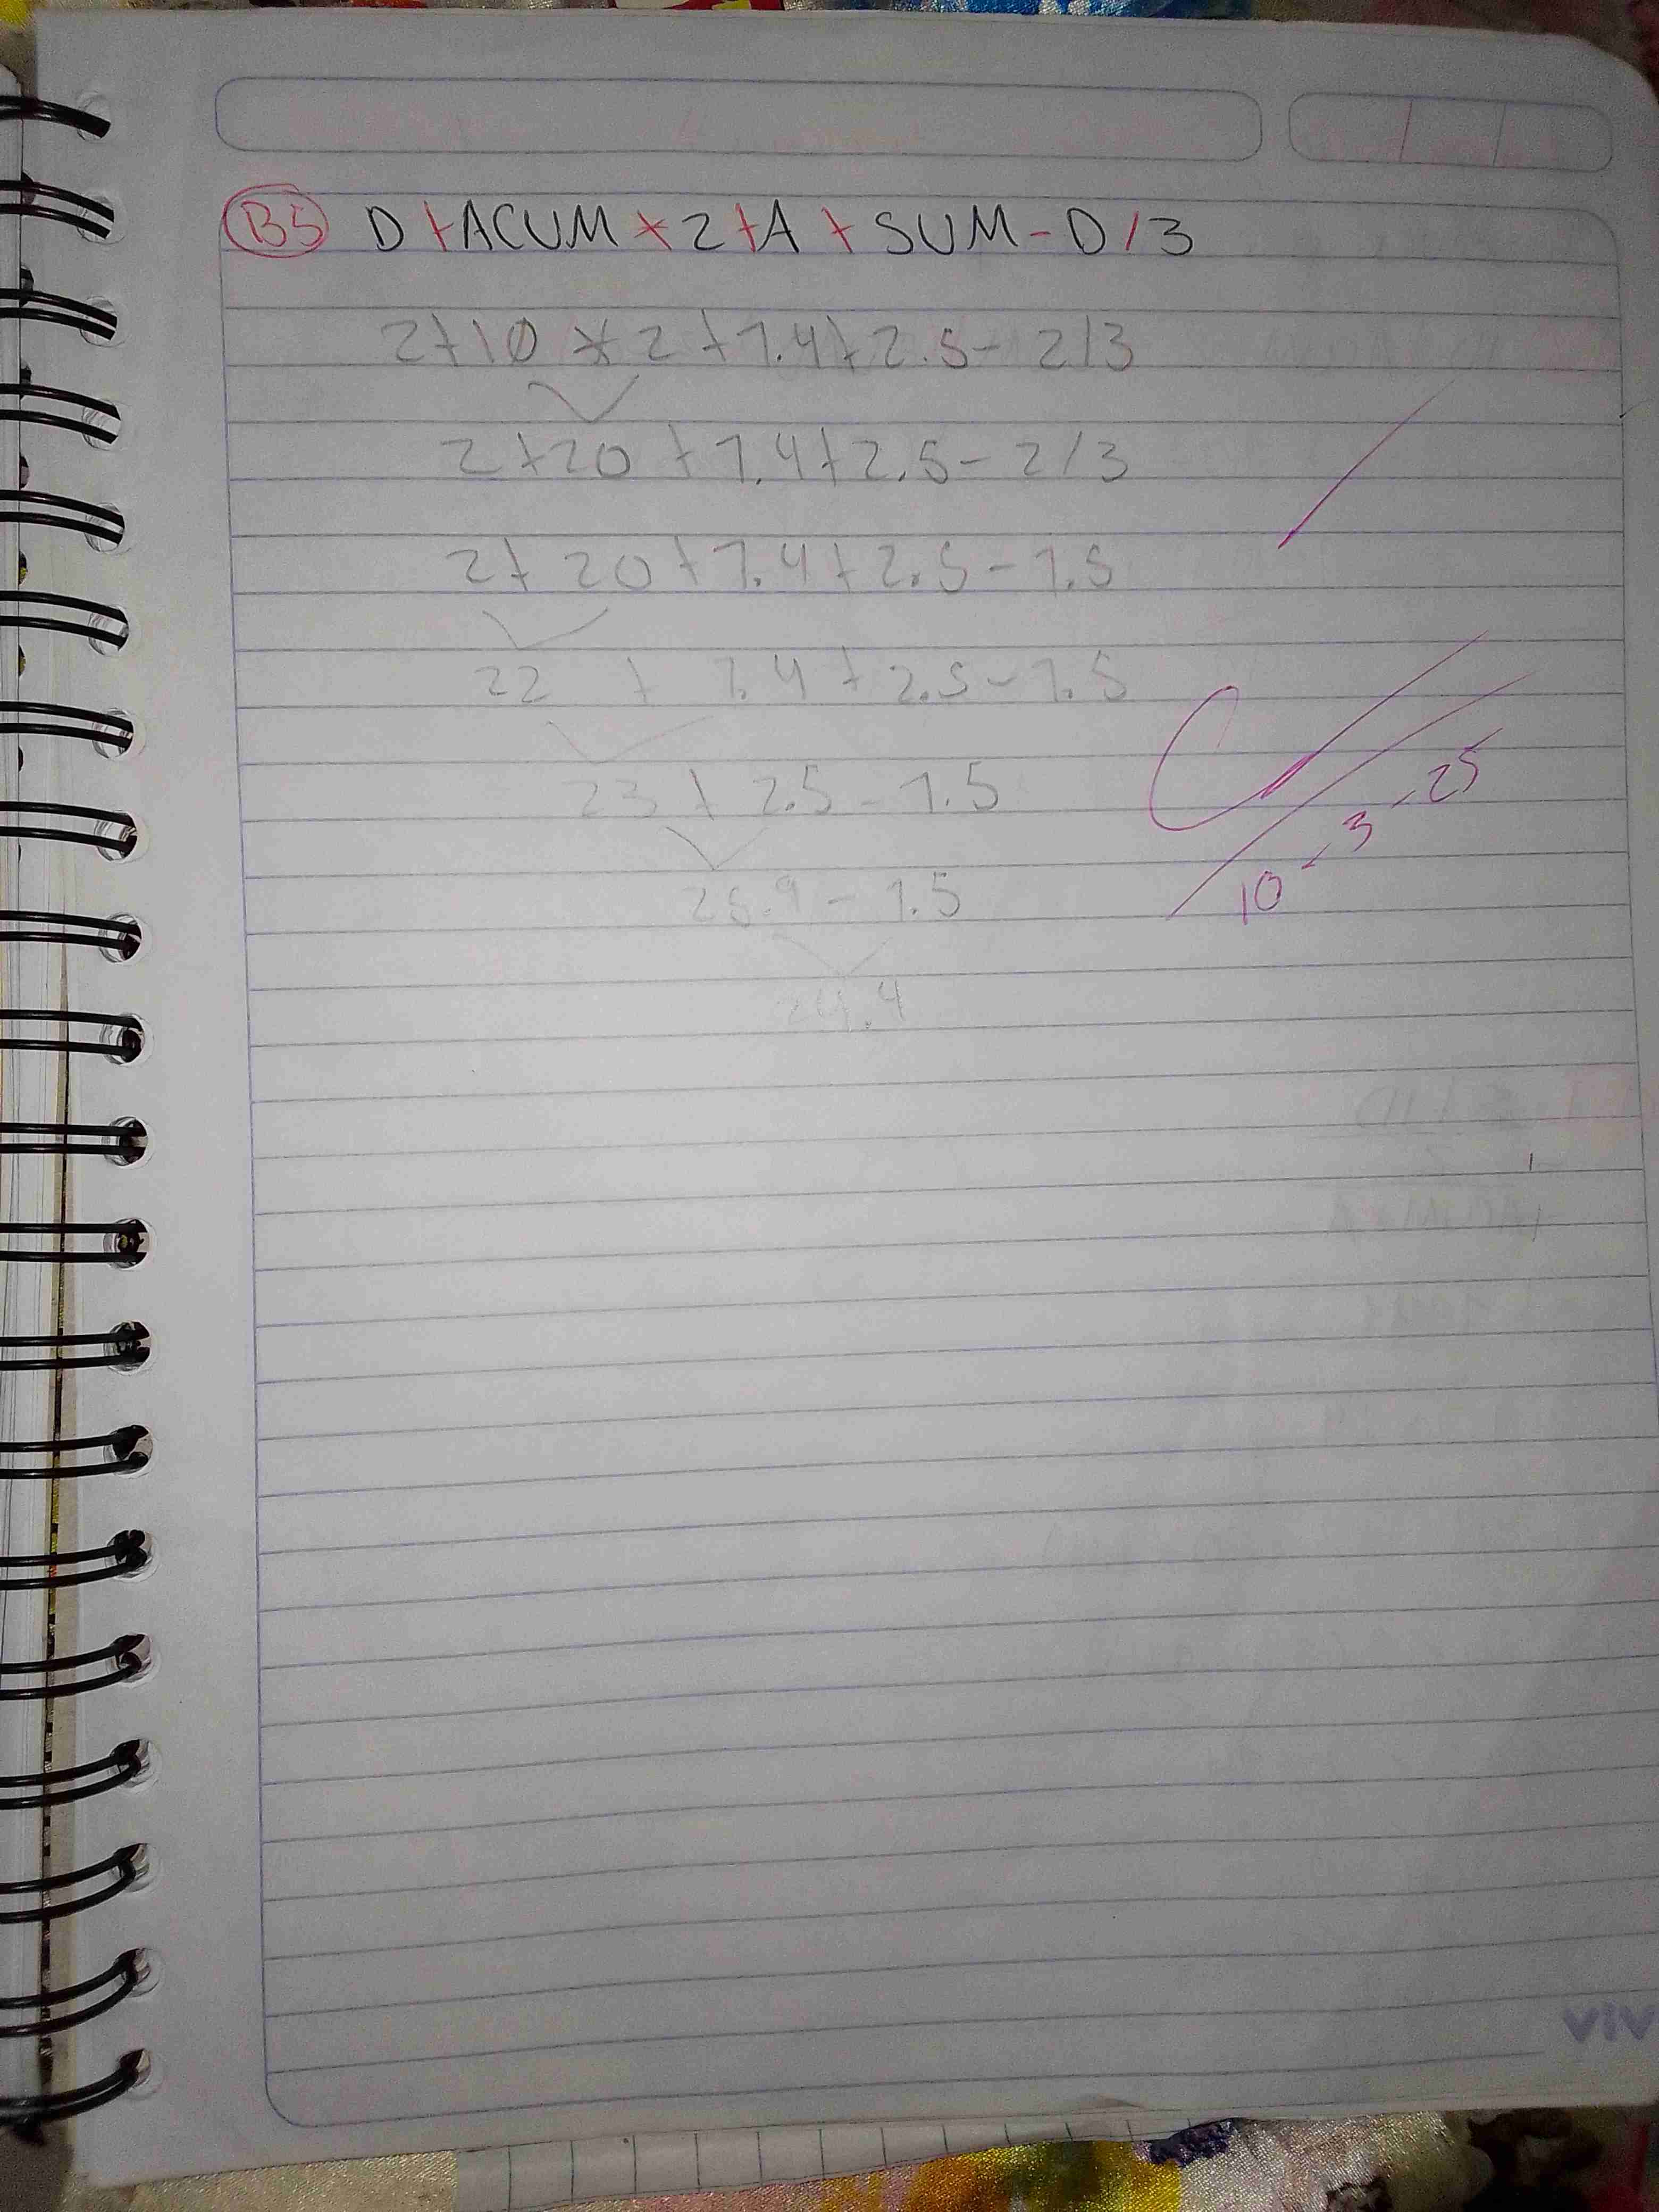 B5 D+ACUM*2+A+SUM-D/3
2+10*2+1.4+2.5-2/3
2+20+1.4+2.5-2/3
2+20+1.4+2.5-1.5
22+1.4+2.5-1.5
23+2.5-1.5
25.9-1.5
24.4
10-3-25
viv